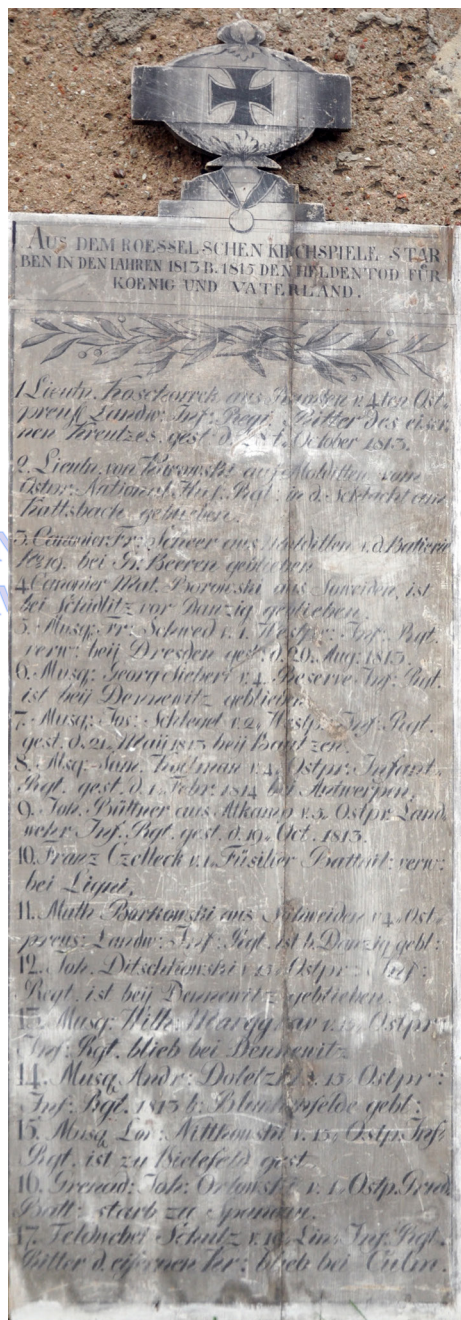 AUS DEM ROESSEL.SCHEN KIRCHSPIELE STAR
BEN IN DEN IAHREN 1813 B. 1815 DEN HELDENTOD FÜR
KOENIG UND VATERLAND.
1 Lieutn. aus v. 4ten Ost
preuß. Landw: Inf: Regt: Ritter des eiser
nen Kreutzes, gest. d. October 1813.
2. Lieutn. von aus vom
Ostpr: National Regt: in d. Schlacht am
Kattsbach geblieben.
3. Canonier Fr: aus v. d. Batterie
bei Gr. Beeren geblieben
4 Canonier Mat. Borowski aus ist
bei Schidlitz vor Danzig geblieben
5. Musq: Fr: Schwed v. 1. Westpr: Inf: Rgt.
verw: beÿ Dresden gest. d. 26. Aug: 1813.
6. Musq: Georg Siebert v. 4. Reserve Inf: Rgt.
ist beÿ Dennewitz geblieben
7. Musq: Jos: v. 2. Westp: Inf: Rgt.
gest. d. 21. Maÿ 1813 beÿ Bautzen.
8. Msq: Sam. v. 4. Ostpr: Infant.
Rgt. gest. d. 1. Febr. 1814 bei Antwerpen.
9. Joh. Büttner aus Atkamp v. 3. Ostpr. Land
wehr Inf. Rgt. gest. d. 19. Oct. 1813.
10. Franz Czelleck v. 1. Füsilier verw:
bei Ligni.
11. Math Borkowski aus v. 4. Ost:
preus: Landw: Inf: Rgt. ist b. Danzig gebl:
12. Joh. Ditschkowski v. 13. Ostpr: Inf:
Regt. ist beÿ Dennewitz geblieben.
13. Musq: Wilh: v. Ostpr:
Inf: Rgt. blieb bei Dennewitz
14. Musq. Andr: v. 13. Ostpr:
Inf: Rgt. 1813 b: Blankenfelde gebl:
15. Musq Lor: Mittkowski v. 13. Ostpr. Inf:
Rgt. ist zu Bielefeld gest
16. Grenad: Joh: Orlowski v. 1. Ostp. Grnd
Batt: starb zu
17. Feldwebel Schulz v. Inf: Rgt.
Ritter d. eisernen Kr: blieb bei Culm.